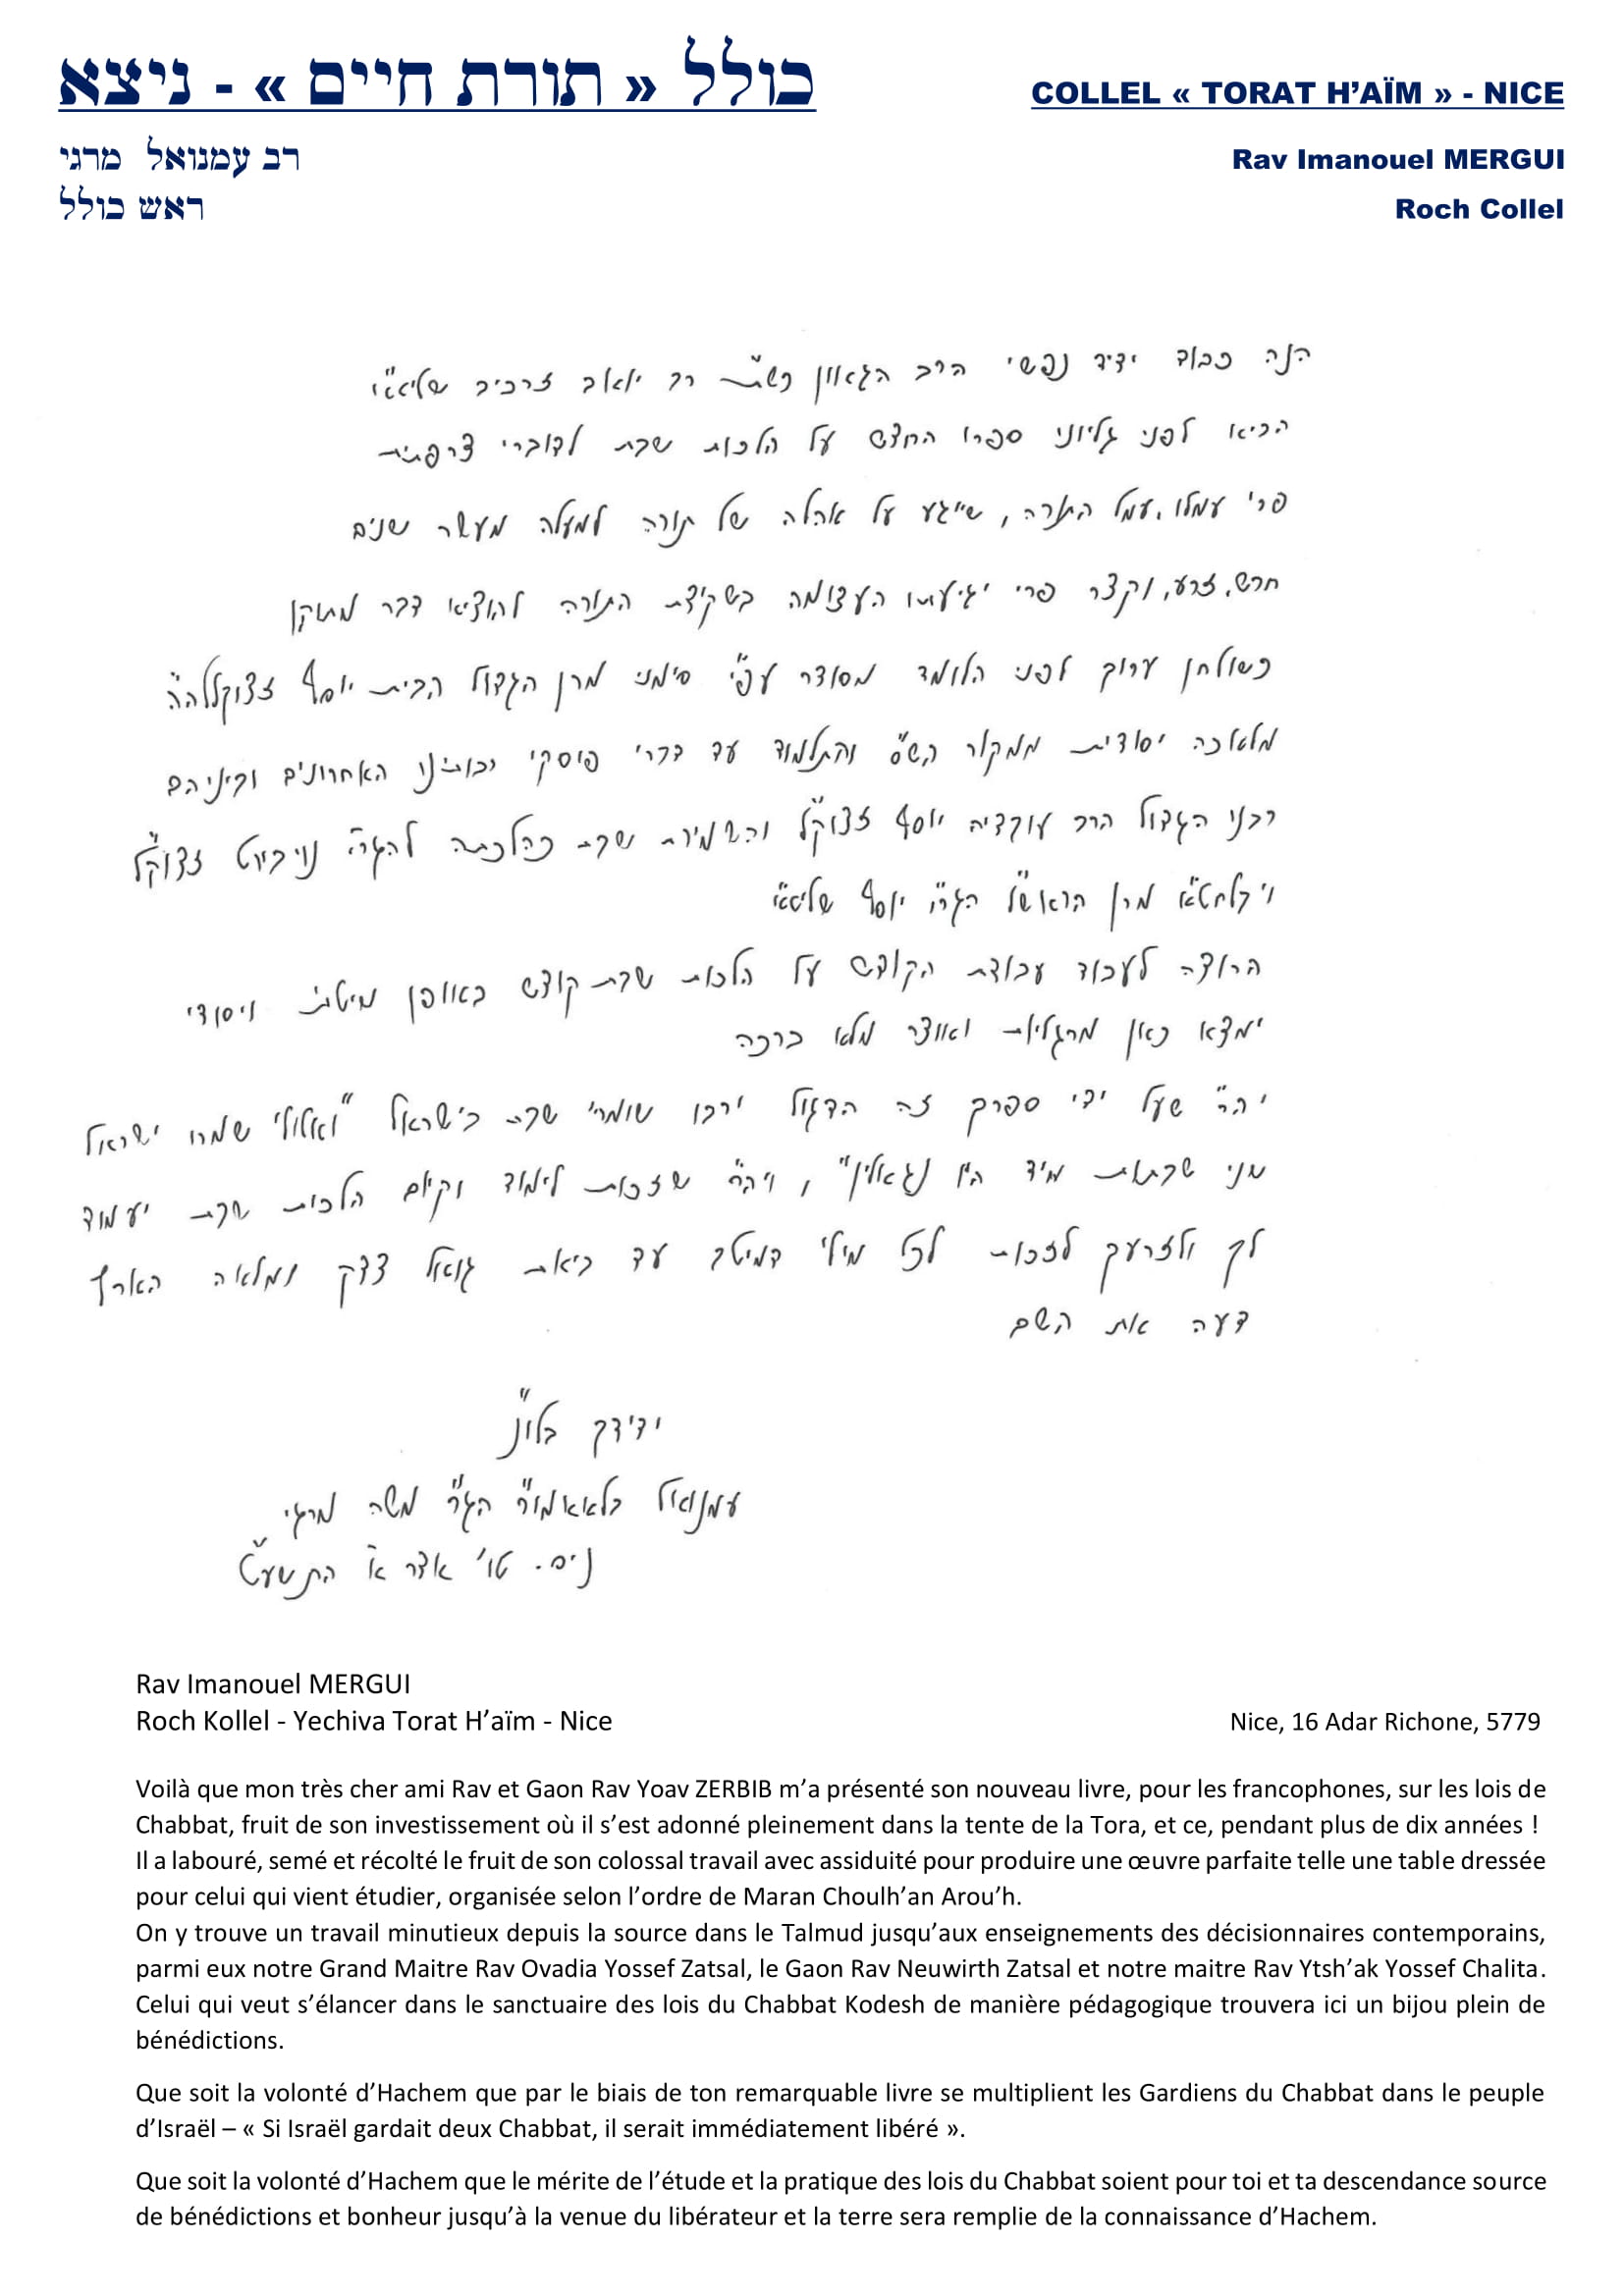 כולל « תורת חיים » - ניצא
COLLEL « TORAT H’AÏM » - NICE
רב עמנואל מרגי
Rav Imanouel MERGUI
ראש כולל
Roch Collel
הנה כבוד ידיד נפשי הרב הגאון כש"ת רב יואב זרביב שליט"א
הביא לפני גליוני ספרו החדש על הלכות שבת לדוברי צרפתית
פרי עמלו, עמל התורה, שייגע על אהלה של תורה למעלה מעשר שנים
חרש, זרע, וקצר פרי יגיעתו העצומה בשקידת התורה להוציא דבר מתוקן
כשולחן ערוך לפני הלומד מסודר עפ"י סימני מרן הגדול הבית יוסף זצוקללה"ה
מלאכה יסודית ממקור הש"ס והתלמוד עד דברי פוסקי רבותינו האחרונים וביניהם
רבינו הגדול הרב עובדיה יוסף זצוק"ל והשמירת שבת כהלכתה להגר"י נויבירט זצוק"ל
ויבלחט"א מרן הראש"ל הגר"י יוסף שליט"א
הרוצה לעבוד עבודת הקודש על הלכות שבת קודש באופן מיטבי ויסודי
ימצא כאן מרגליות ואוצר מלא ברכה
יה"ר שעל ידי ספרך זה הדגול ירבו שומרי שבת בישראל "ואלולי שמרו ישראל
שני שבתות מיד היו נגאלין", ויה"ר שזכות לימוד וקיום הלכות שבת יעמוד
לך ולזרעך לזכות לכל מילי דמיטב עד ביאת גואל צדק ומלאה הארץ
דעה את השם
ידידך בלונ"ח
עמנואל בלאאמו"ר הגר"מ משה מרגי
ניס. טו' אדר א' התשע"ט
Rav Imanouel MERGUI
Roch Kollel - Yechiva Torat H’aïm - Nice
Nice, 16 Adar Richone, 5779
Voilà que mon très cher ami Rav et Gaon Rav Yoav ZERBIB m’a présenté son nouveau livre, pour les francophones, sur les lois de
Chabbat, fruit de son investissement où il s’est adonné pleinement dans la tente de la Tora, et ce, pendant plus de dix années !
Il a labouré, semé et récolté le fruit de son colossal travail avec assiduité pour produire une œuvre parfaite telle une table dressée
pour celui qui vient étudier, organisée selon l’ordre de Maran Choulh’an Arou’h.
On y trouve un travail minutieux depuis la source dans le Talmud jusqu’aux enseignements des décisionnaires contemporains,
parmi eux notre Grand Maitre Rav Ovadia Yossef Zatsal, le Gaon Rav Neuwirth Zatsal et notre maitre Rav Ytsh’ak Yossef Chalita.
Celui qui veut s’élancer dans le sanctuaire des lois du Chabbat Kodesh de manière pédagogique trouvera ici un bijou plein de
bénédictions.
Que soit la volonté d’Hachem que par le biais de ton remarquable livre se multiplient les Gardiens du Chabbat dans le peuple
d’Israël – « Si Israël gardait deux Chabbat, il serait immédiatement libéré ».
Que soit la volonté d’Hachem que le mérite de l’étude et la pratique des lois du Chabbat soient pour toi et ta descendance source
de bénédictions et bonheur jusqu’à la venue du libérateur et la terre sera remplie de la connaissance d’Hachem.